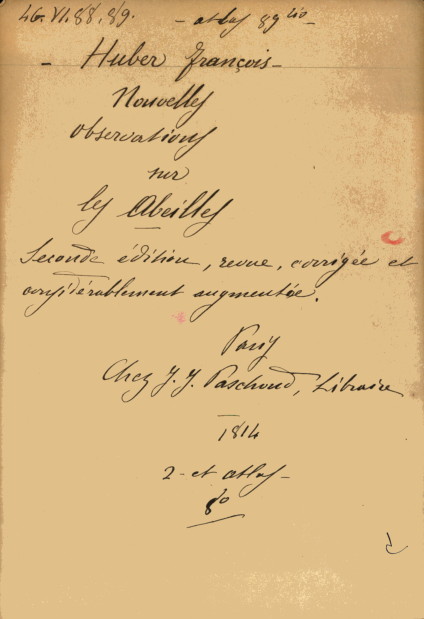 46. VI. 88, 89. - atlas 89 bis -
- Huber françois -
Nouvelles
observations
sur
les Abeilles
-
Seconde édition, revue, corrigée et
considérablement augmentée.
Paris
Chez J. J. Paschoud, Libraire
-
1814
2 - et atlas -
8o